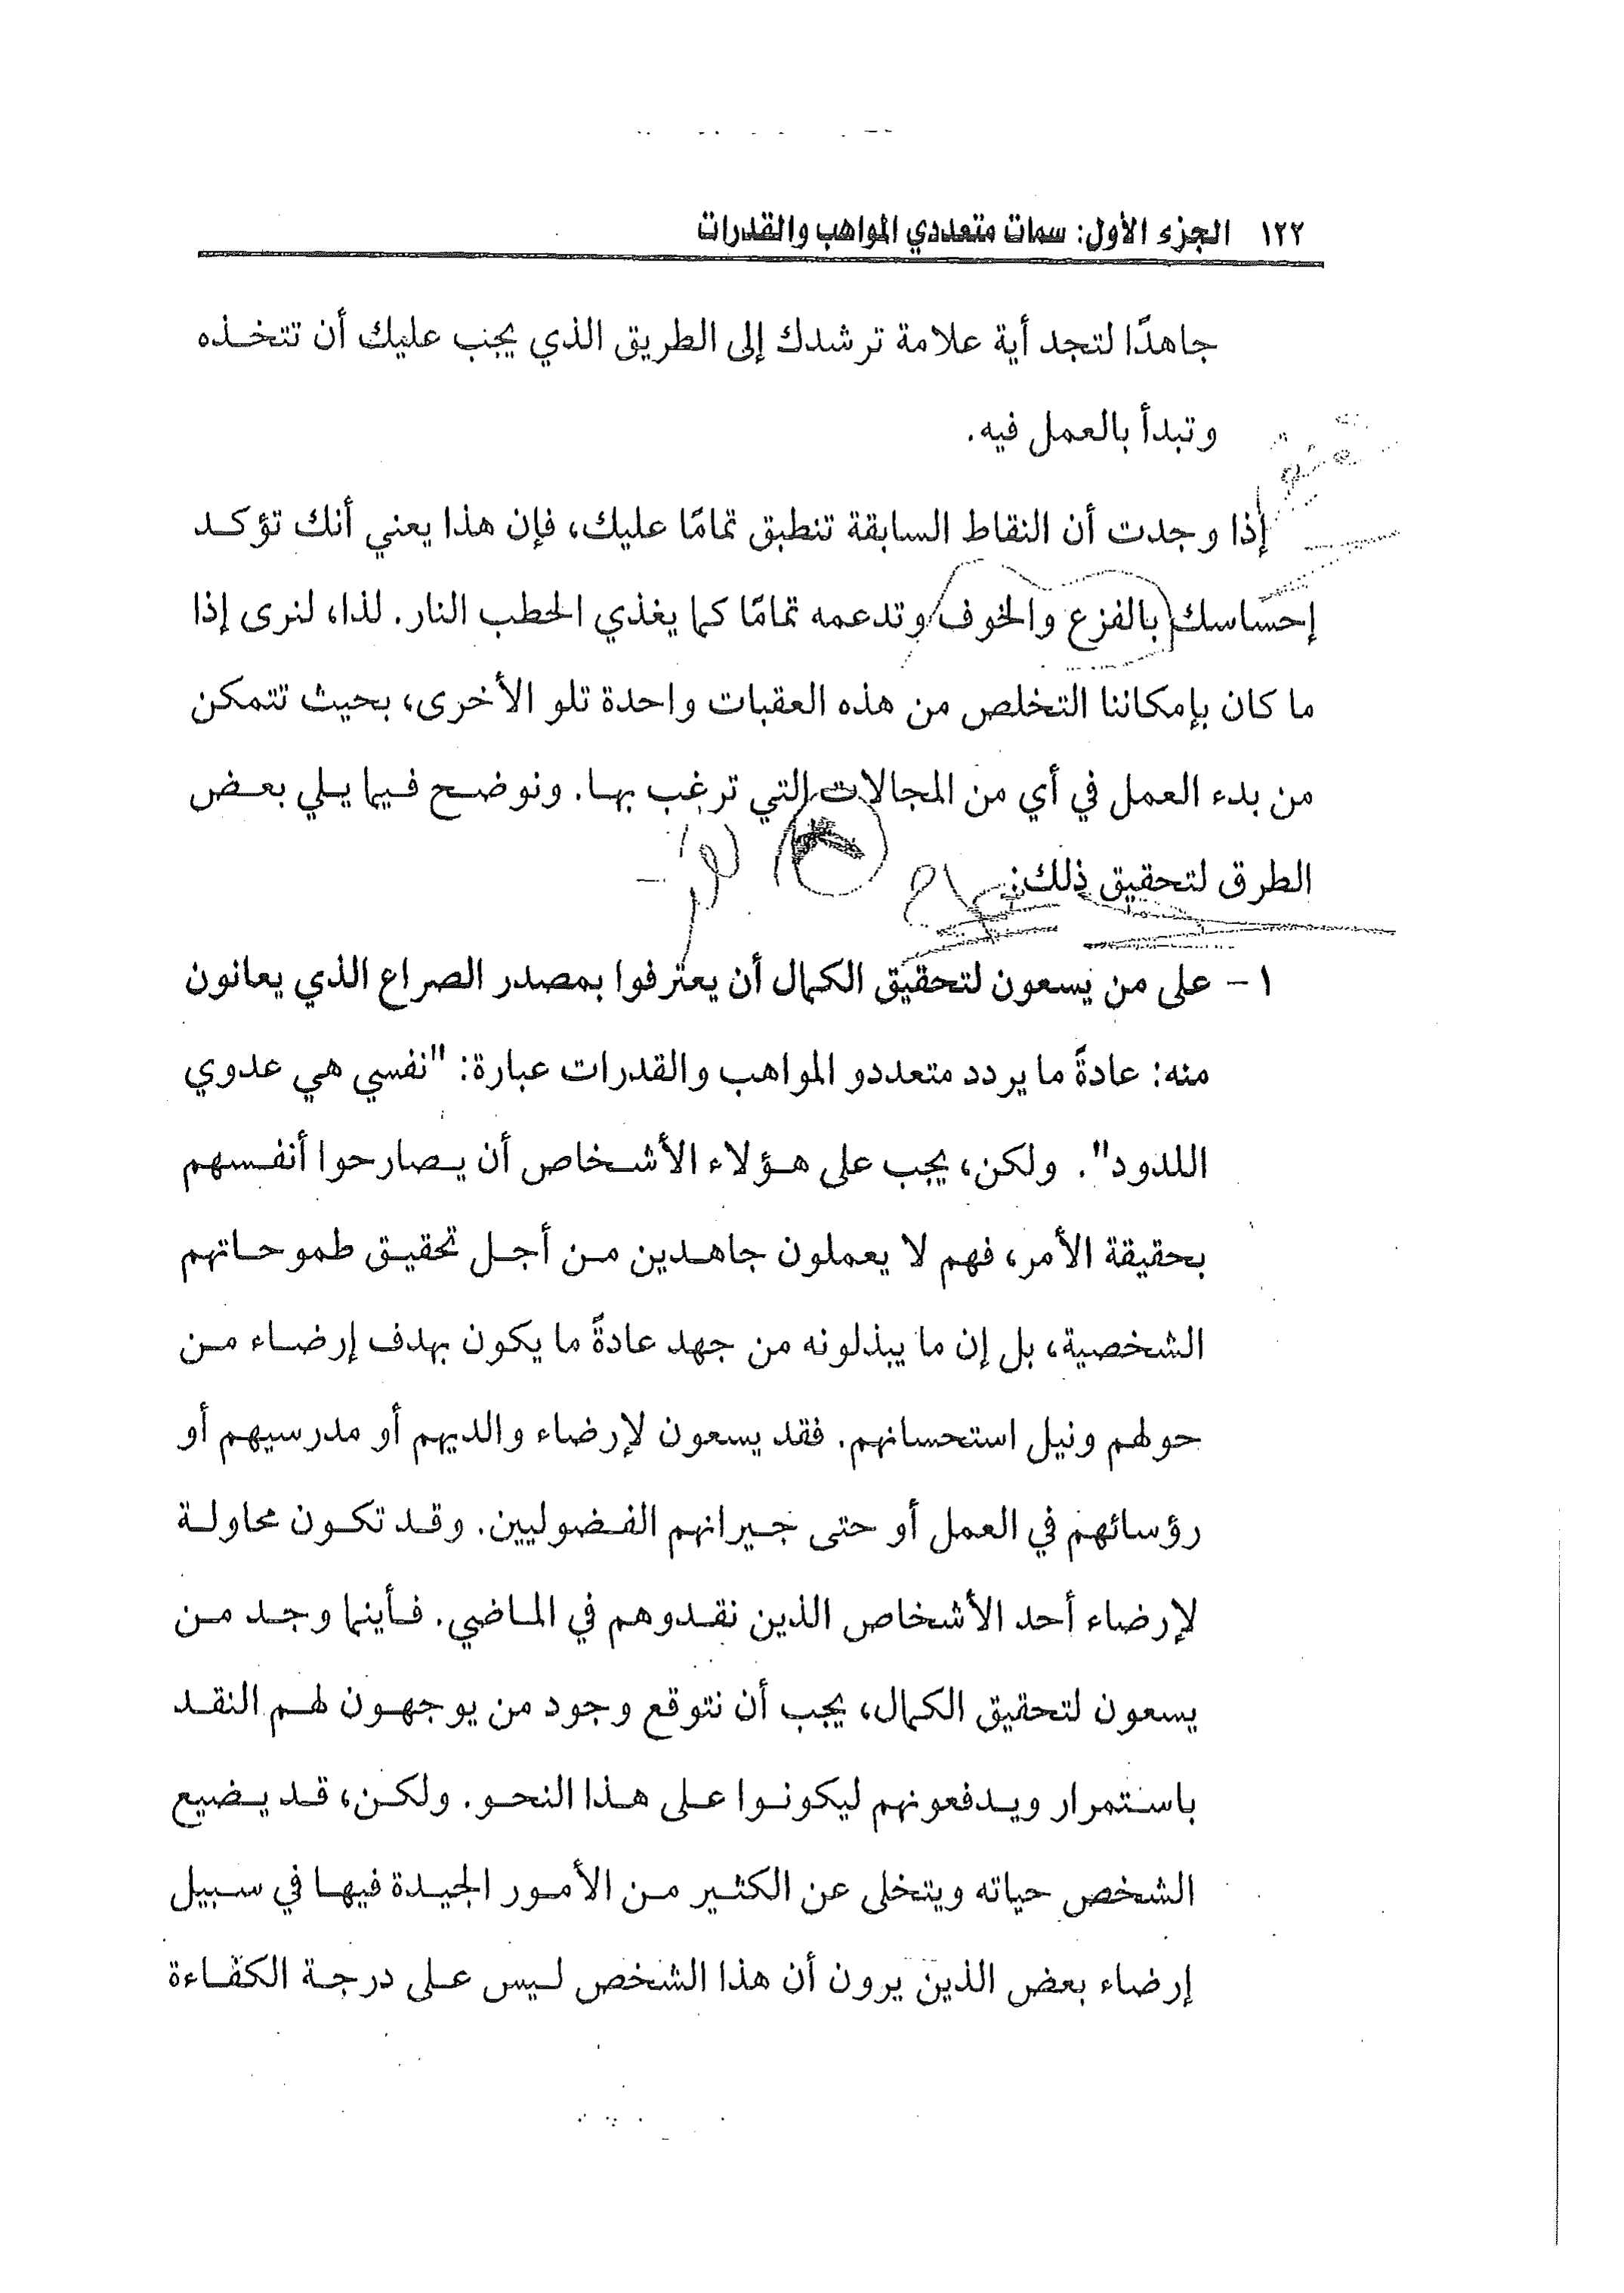 ١٢٢ الجزء الأول: سمات متعددي المواهب والقدرات
جاهدًا لتجد أية علامة ترشدك إلى الطريق الذي يجب عليك أن تتخذه
وتبدأ بالعمل فيه.
إذا وجدت أن النقاط السابقة تنطبق تمامًا عليك، فإن هذا يعني أنك تؤكد
إحساسك بالفزع والخوف وتدعمه تمامًا كما يغذي الحطب النار. لذا، لنرى إذا
ما كان بإمكاننا التخلص من هذه العقبات واحدة تلو الأخرى، بحيث تتمكن
من بدء العمل في أي من المجالات التي ترغب بها. ونوضح فيما يلي بعض
الطرق لتحقيق ذلك:
١- على من يسعون لتحقيق الكمال أن يعترفوا بمصدر الصراع الذي يعانون
منه: عادةً ما يردد متعددو المواهب والقدرات عبارة: "نفسي هي عدوي
اللدود". ولكن، يجب على هؤلاء الأشخاص أن يصارحوا أنفسهم
بحقيقة الأمر، فهم لا يعملون جاهدين من أجل تحقيق طموحاتهم
الشخصية، بل إن ما يبذلونه من جهد عادةً ما يكون بهدف إرضاء من
حولهم ونيل استحسانهم. فقد يسعون لإرضاء والديهم أو مدرسيهم أو
رؤسائهم في العمل أو حتى جيرانهم الفضوليين. وقد تكون محاولة
لإرضاء أحد الأشخاص الذين نقدوهم في الماضي. فأينما وجد من
يسعون لتحقيق الكمال، يجب أن نتوقع وجود من يوجهون لهم النقد
باستمرار ويدفعونهم ليكونوا على هذا النحو. ولكن، قد يضيع
الشخص حياته ويتخلى عن الكثير من الأمور الجيدة فيها في سبيل
إرضاء بعض الذين يرون أن هذا الشخص ليس على درجة الكفاءة